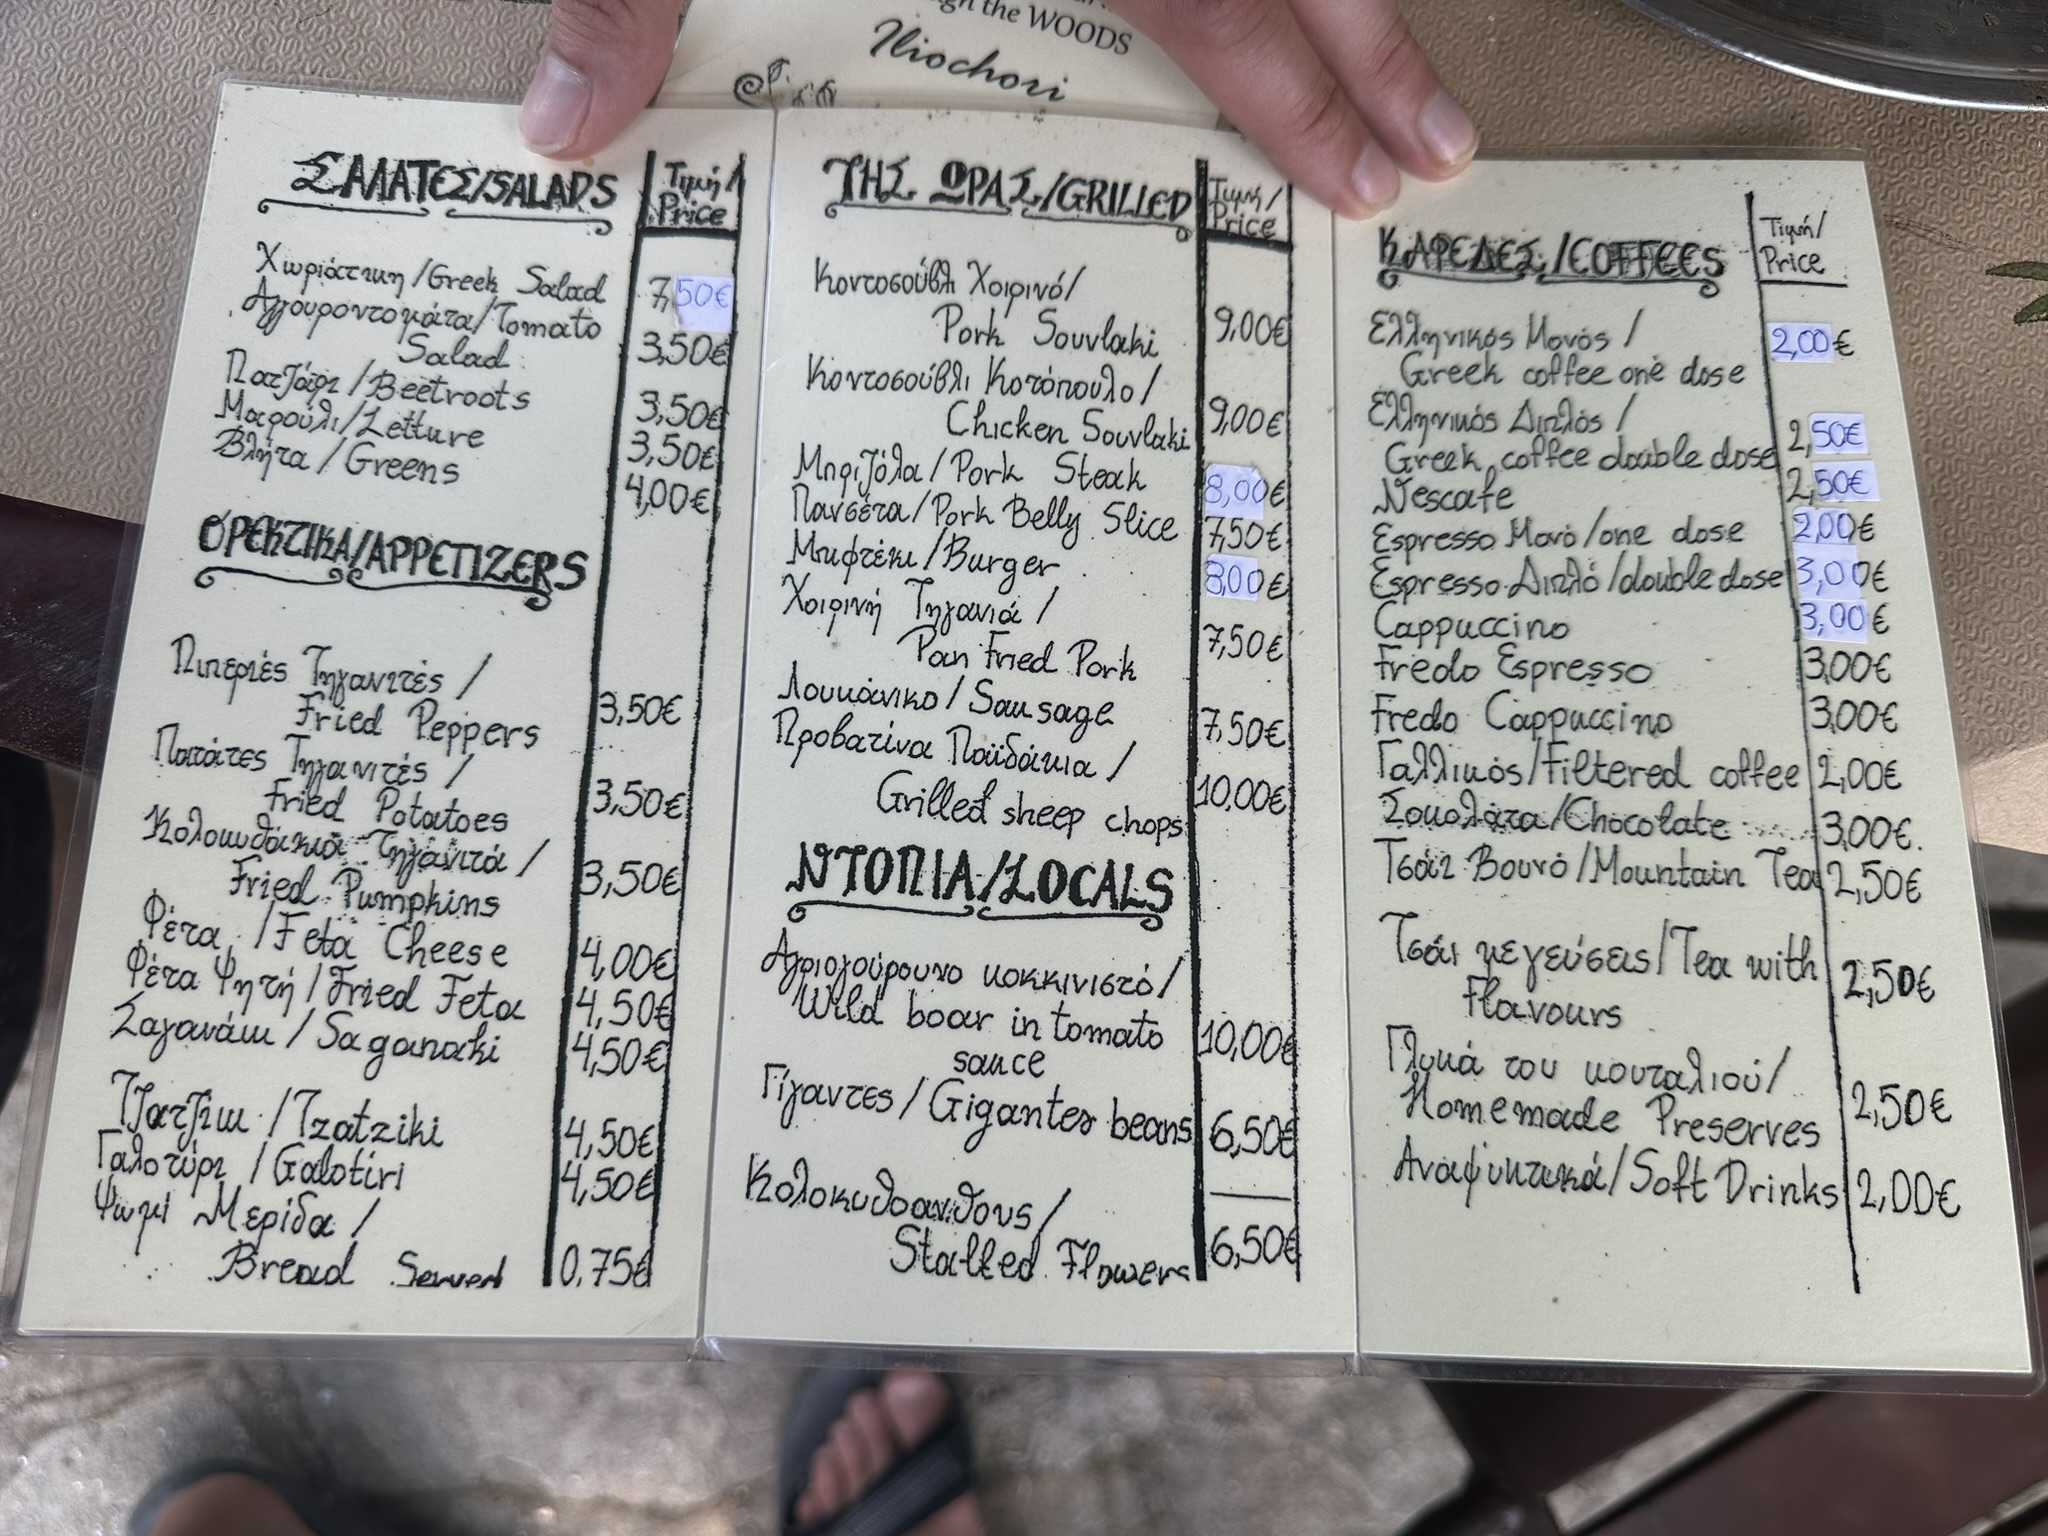 the WOODS
Iliochori
ΣΑΛΑΤΕΣ/SALADS
Τιμή/
Price
Χωριάτικη/Greek Salad 7,50€
Αγγουροντομάτα/Tomato
Salad 3,50€
Πατζάρι/Beetroots 3,50€
Μαρούλι/Letture 3,50€
Βλήτα/Greens 4,00€
ΟΡΕΚΤΙΚΑ/APPETIZERS
Πιπεριές Τηγανιτές /
Fried Peppers 3,50€
Πατάτες Τηγανιτές /
Fried Potatoes 3,50€
Κολοκυθάκια Τηγανιτά /
Fried Pumpkins 3,50€
Φέτα /Feta Cheese 4,00€
Φέτα Ψητή/Fried Feta 4,50€
Σαγανάκι/Saganaki 4,50€
Τζατζίκι/Tzatziki 4,50€
Γαλοτύρι/Galotiri 4,50€
Ψωμί Μερίδα /
Bread Served 0,75€
ΤΗΣ ΩΡΑΣ/GRILLED
Τιμή/
Price
Κοντοσούβλι Χοιρινό/
Pork Souvlaki 9,00€
Κοντοσούβλι Κοτόπουλο/
Chicken Souvlaki 9,00€
Μπριζόλα/Pork Steak 8,00€
Πανσέτα/Pork Belly Slice 7,50€
Μπιφτέκι/Burger 8,00€
Χοιρινή Τηγανιά /
Pan Fried Pork 7,50€
Λουκάνικο/Sausage 7,50€
Προβατίνα Παϊδάκια /
Grilled sheep chops 10,00€
ΝΤΟΠΙΑ/LOCALS
Αγριογούρουνο κοκκινιστό/
Wild boar in tomato
sauce 10,00€
Γίγαντες/Gigantes beans 6,50€
Κολοκυθοανθους/
Stalled Flowers 6,50€
ΚΑΦΕΔΕΣ/COFFEES
Τιμή/
Price
Ελληνικός Μονός /
Greek coffee one dose 2,00€
Ελληνικός Διπλός /
Greek coffee double dose 2,50€
Nescafe 2,50€
Espresso Μονό/one dose 2,00€
Espresso Διπλό/double dose 3,00€
Cappuccino 3,00€
Fredo Espresso 3,00€
Fredo Cappuccino 3,00€
Γαλλικός/Filtered coffee 2,00€
Σοκολάτα/Chocolate 3,00€
Τσάι Βουνό/Mountain Tea 2,50€
Τσάι με γεύσεις/Tea with
Flavours 2,50€
Γλυκά του κουταλιού/
Homemade Preserves 2,50€
Αναψυκτικά/Soft Drinks 2,00€